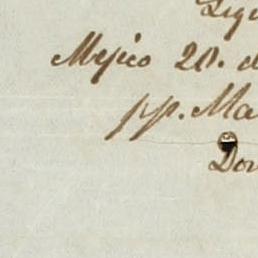 Mejico 20. d
pp. Ma
Don